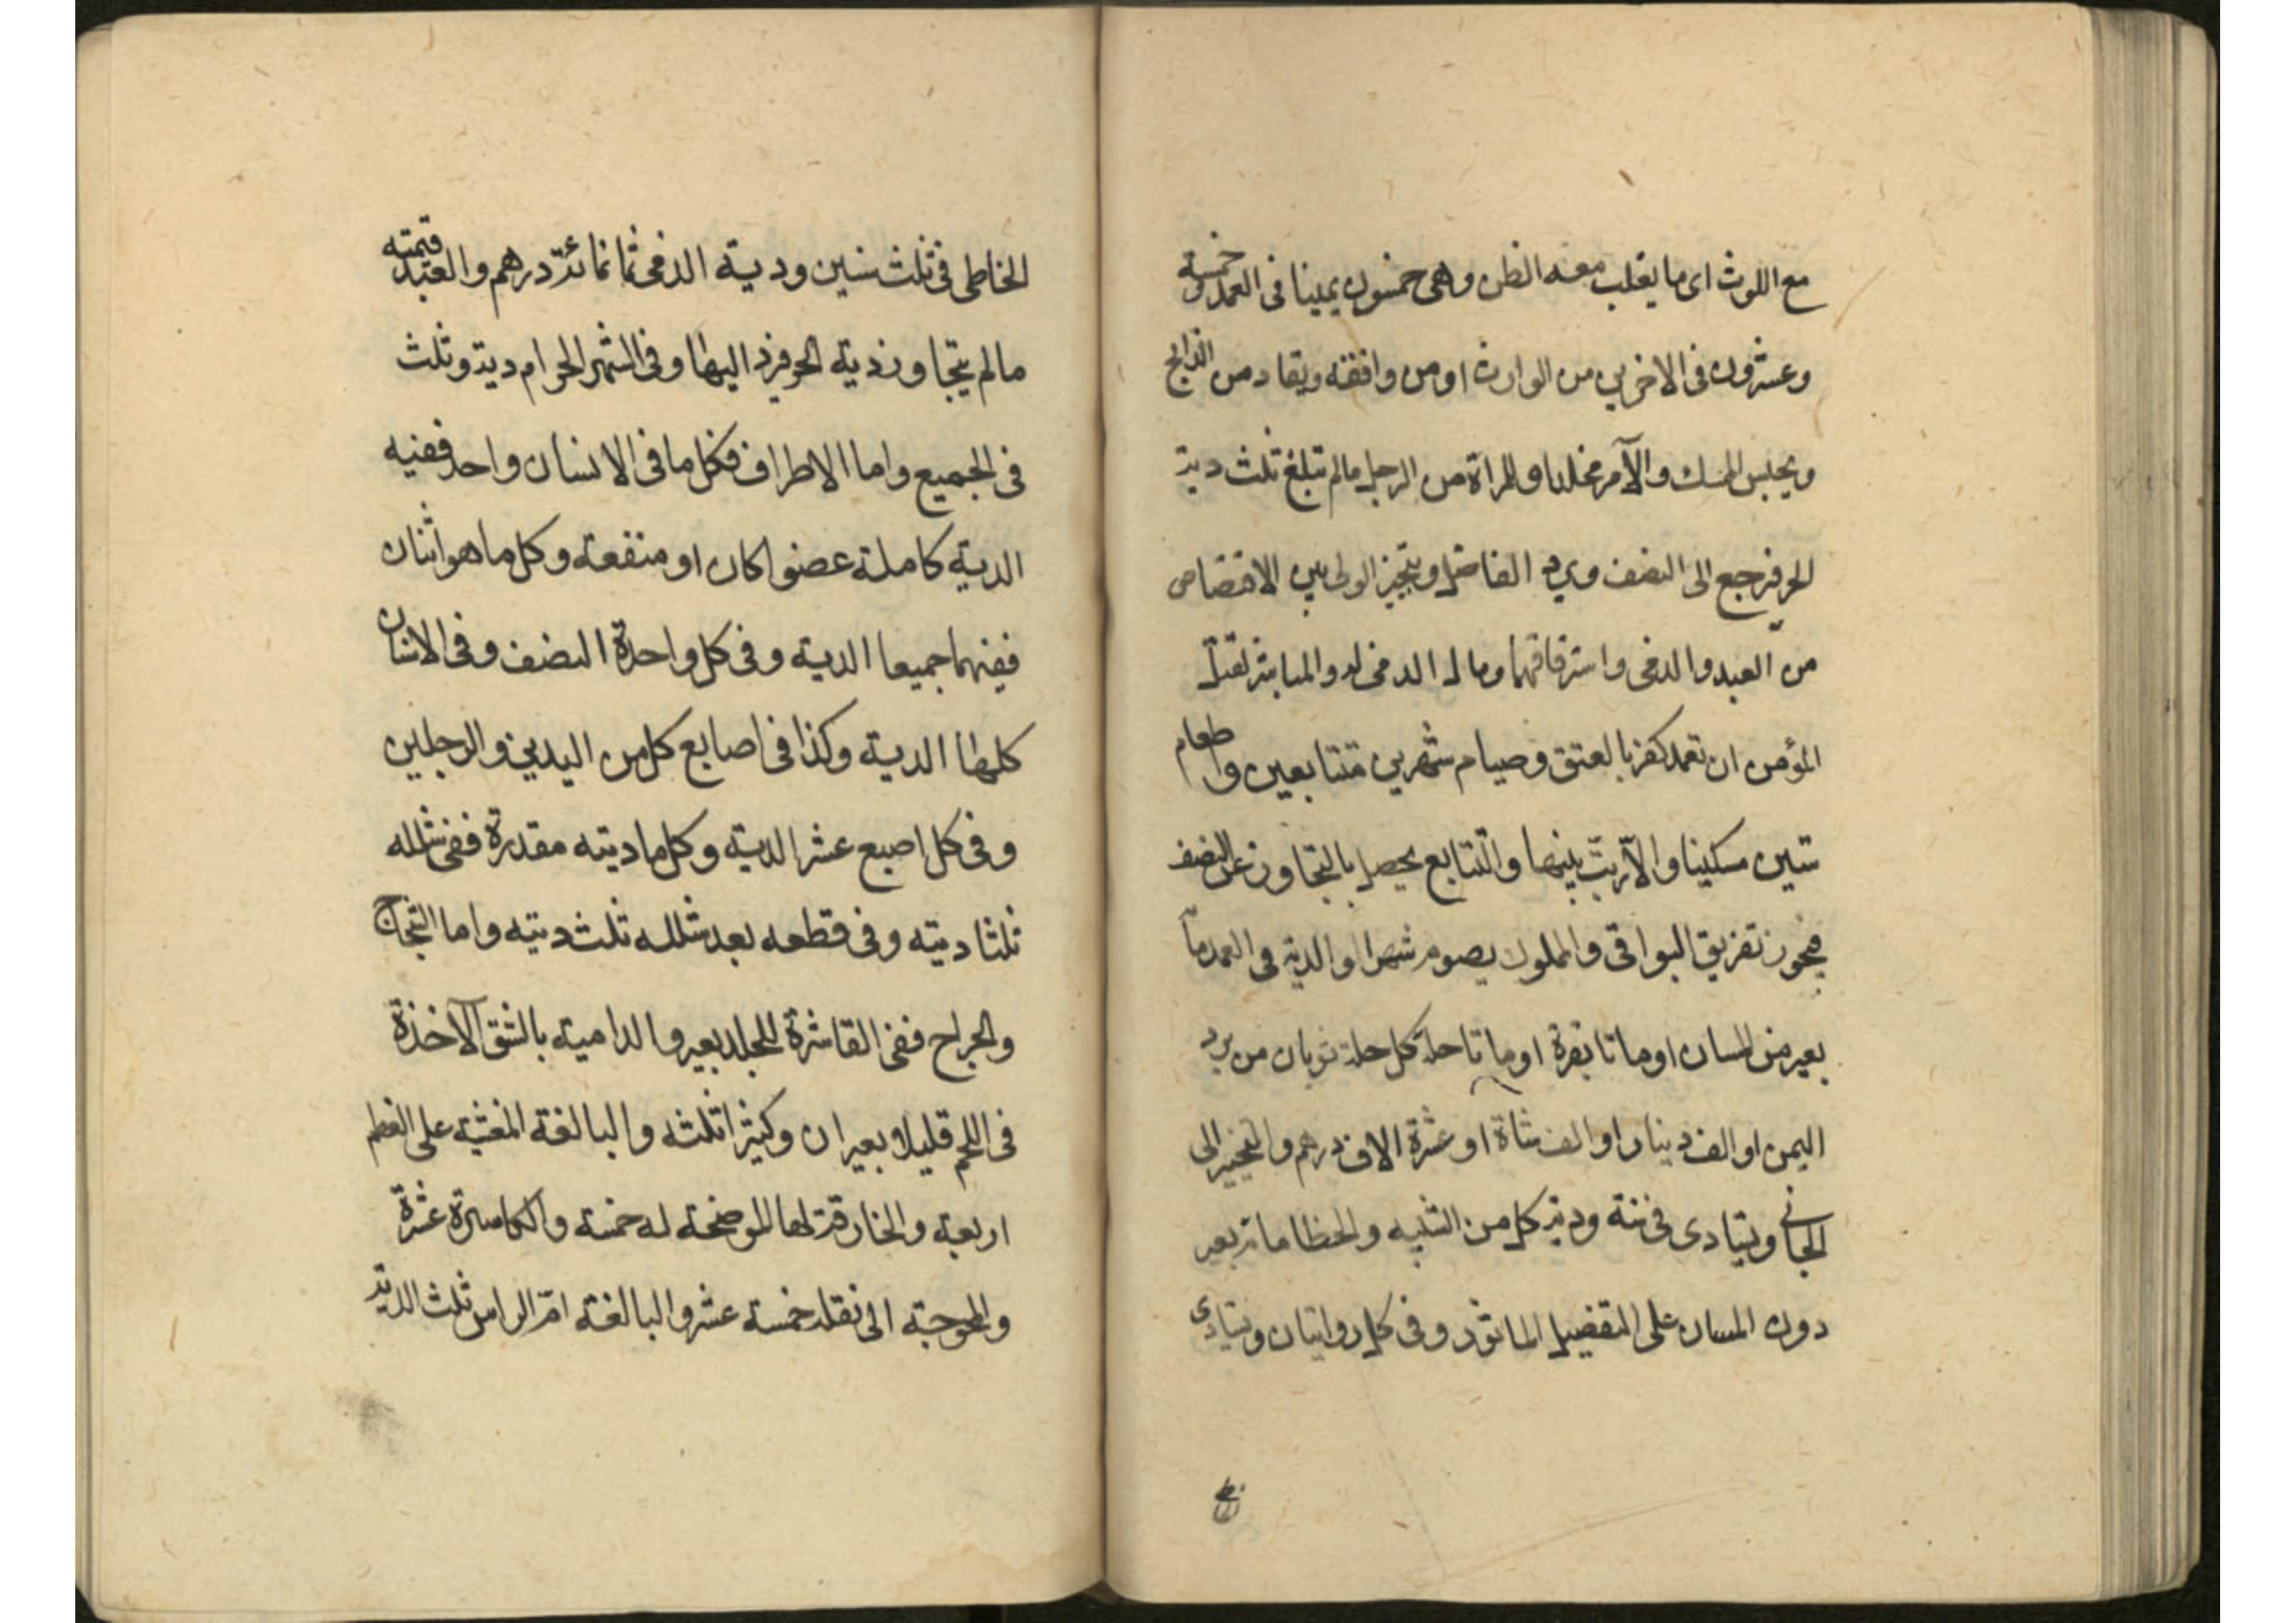 مع اللوث اى ما يغلب معه الظن وهى خمسون يمينا فى العمد وخمسة
وعشرون فى الاخريين من الوارث او من وافقه ويقاد من الذابح
ويحبس الممسك والآمر مخلدا وللمراة من الرجل ما لم تبلغ ثلث دية
الحر فترجع الى النصف ويرد الفاضل ويتخير الولى بين الاقتصاص
من العبد والذمى واسترقاقهما ومال الذمى له والمباشر لقتل
المؤمن ان تعمد كفر بالعتق وصيام شهرين متتابعين واطعام
ستين مسكينا والا رتب بينها والتتابع يحصل بالتجاوز عن النصف
فيجوز تفريق البواقى والمملوك يصوم شهرا والدية فى العمد مأ
بعير من المسان او مائتا بقرة او مائتا حلة كل حلة ثوبان من برد
اليمن او الف دينار او الف شاة او عشرة الاف درهم والتخيير الى
الجانى ويتادى فى سنة ودية كل من الشبيه والخطا مائة بعير
دون المسان على التفضيل الماثور وفى كل روايتان ويتادى
الخاطى فى ثلث سنين ودية الذمى ثمانمائة درهم والعبد قيمته
ما لم يتجاوز دية الحر فيرد اليها وفى الشهر الحرام دية وثلث
فى الجميع واما الاطراف فكل ما فى الانسان واحد ففيه
الدية كاملة عضوا كان او منفعة وكل ما هو اثنان
ففيهما جميعا الدية وفى كل واحدة النصف وفى الاسنان
كلها الدية وكذا فى اصابع كل من اليدين والرجلين
وفى كل اصبع عشر الدية وكل ما ديته مقدرة ففى شلله
ثلثا ديته وفى قطعه بعد شلله ثلث ديته واما الشجاج
والجراح ففى القاشرة للجلد بعير والدامية بالشق الآخذة
فى اللحم قليلا بعيران وكثيرا ثلثه والبالغة المغشية على العظم
اربعة والخارقة لها الموضحة له خمسة والكاسرة عشرة
والمحوجة الى نقله خمسة عشر والبالغة ام الراس ثلث الدية